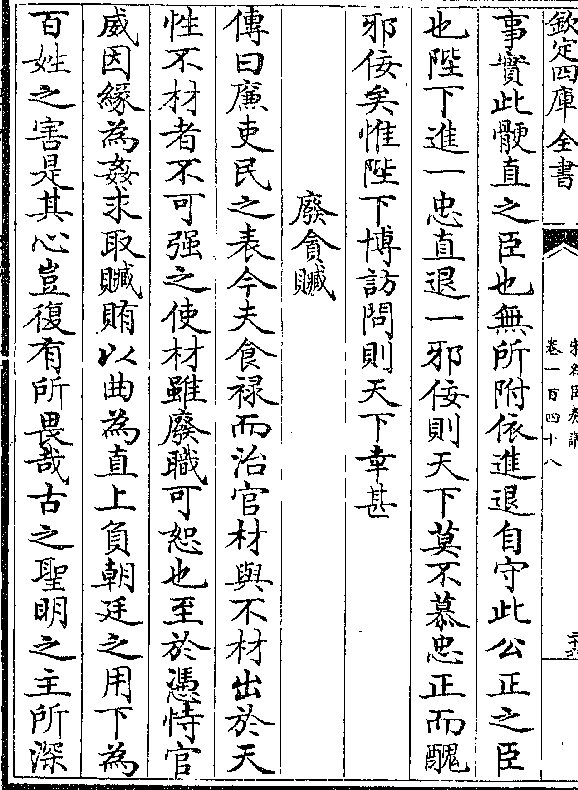 欽定四庫全書
卷一百四十八
事實此骾直之臣也無所附依進退自守此公正之臣
也陛下進一忠直退一邪佞則天下莫不慕忠正而醜
邪佞矣惟陛下博訪問則天下幸甚
廢貪贓
傳曰廉吏民之表今夫食禄而治官材與不材出於天
性不材者不可强之使材雖廢職可恕也至於憑恃官
威因緣為姦求取贓賄以曲為直上負朝廷之用下為
百姓之害是其心豈復有所畏哉古之聖明之主所深